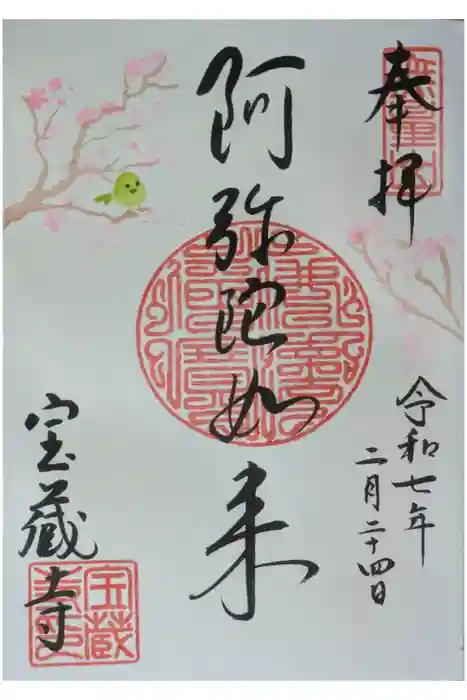 奉拝
無量山
令和七年
二月二十四日
阿弥陀如来
宝蔵寺
宝蔵